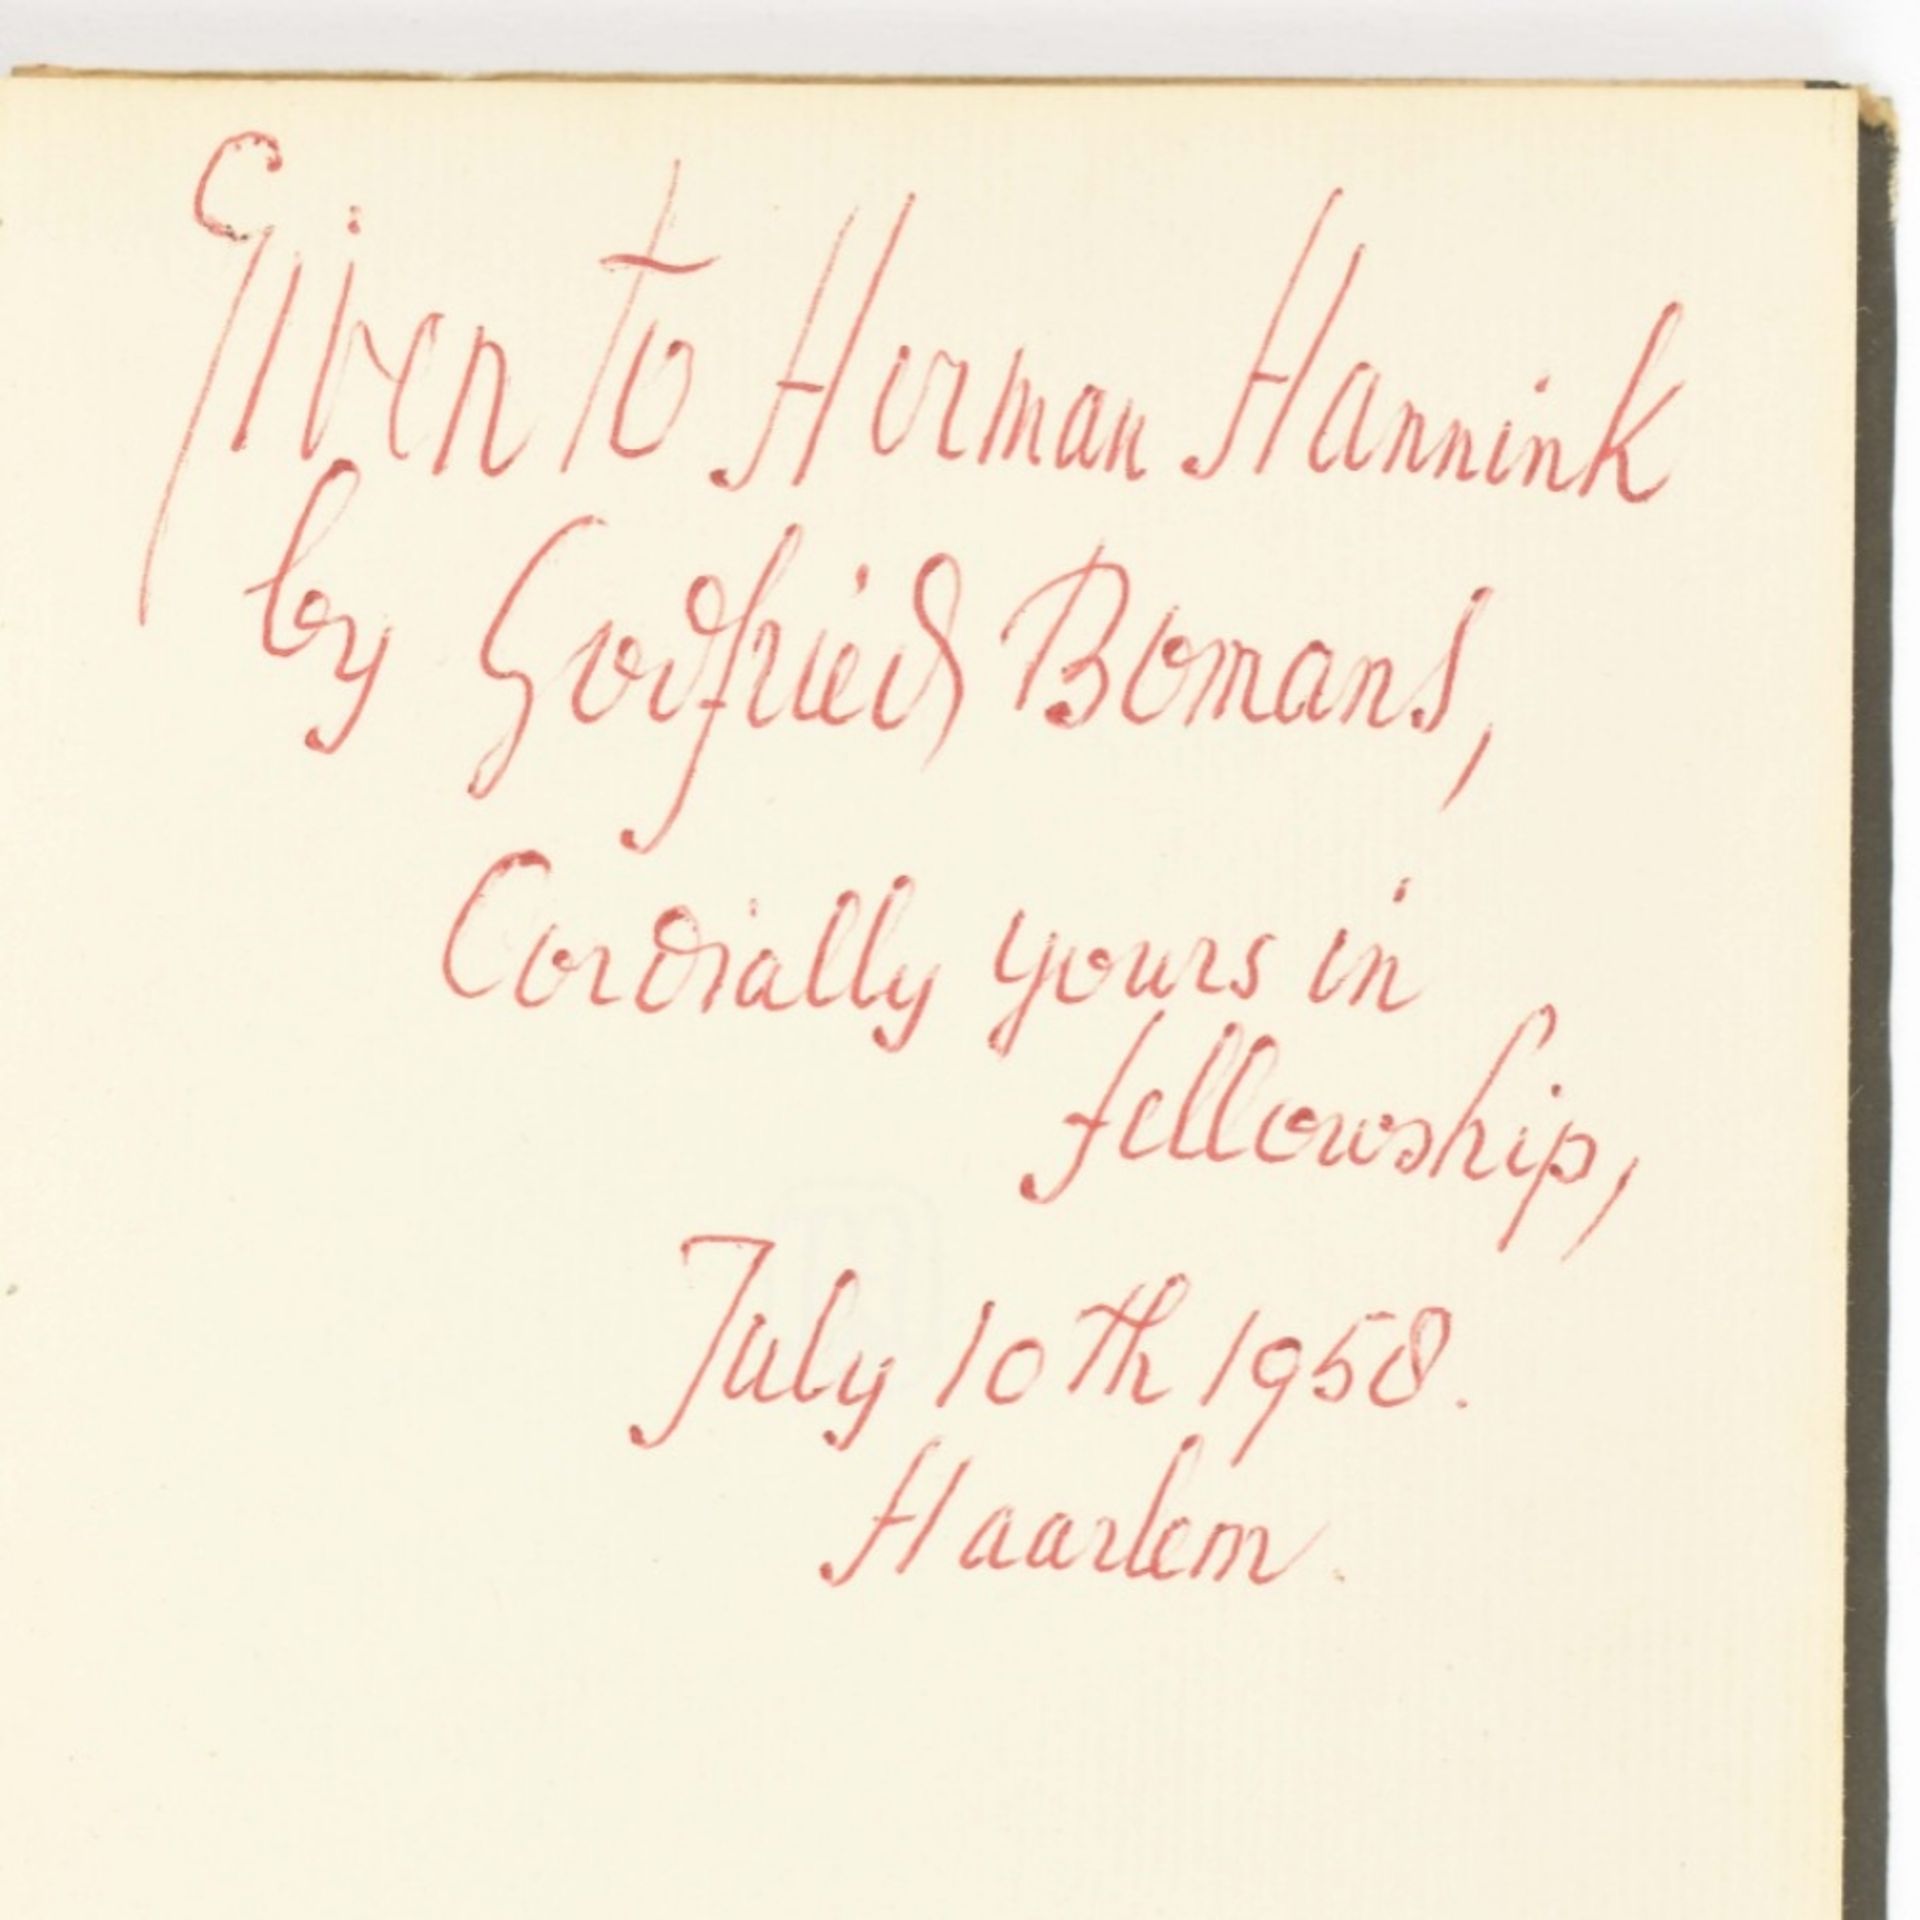 Given to Herman Hannink
by Godfried Bomans,
Cordially yours in
fellowship,
July 10th 1958.
Haarlem.